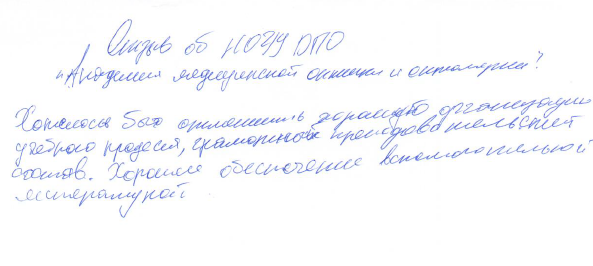 Отзыв об НОЧУ ДПО
"Академия медицинской оптики и оптометрии".
Хотелось бы отметить хорошую организацию
учебного процесса, грамотный преподавательский
состав. Хорошее обеспечение вспомогательной
литературой